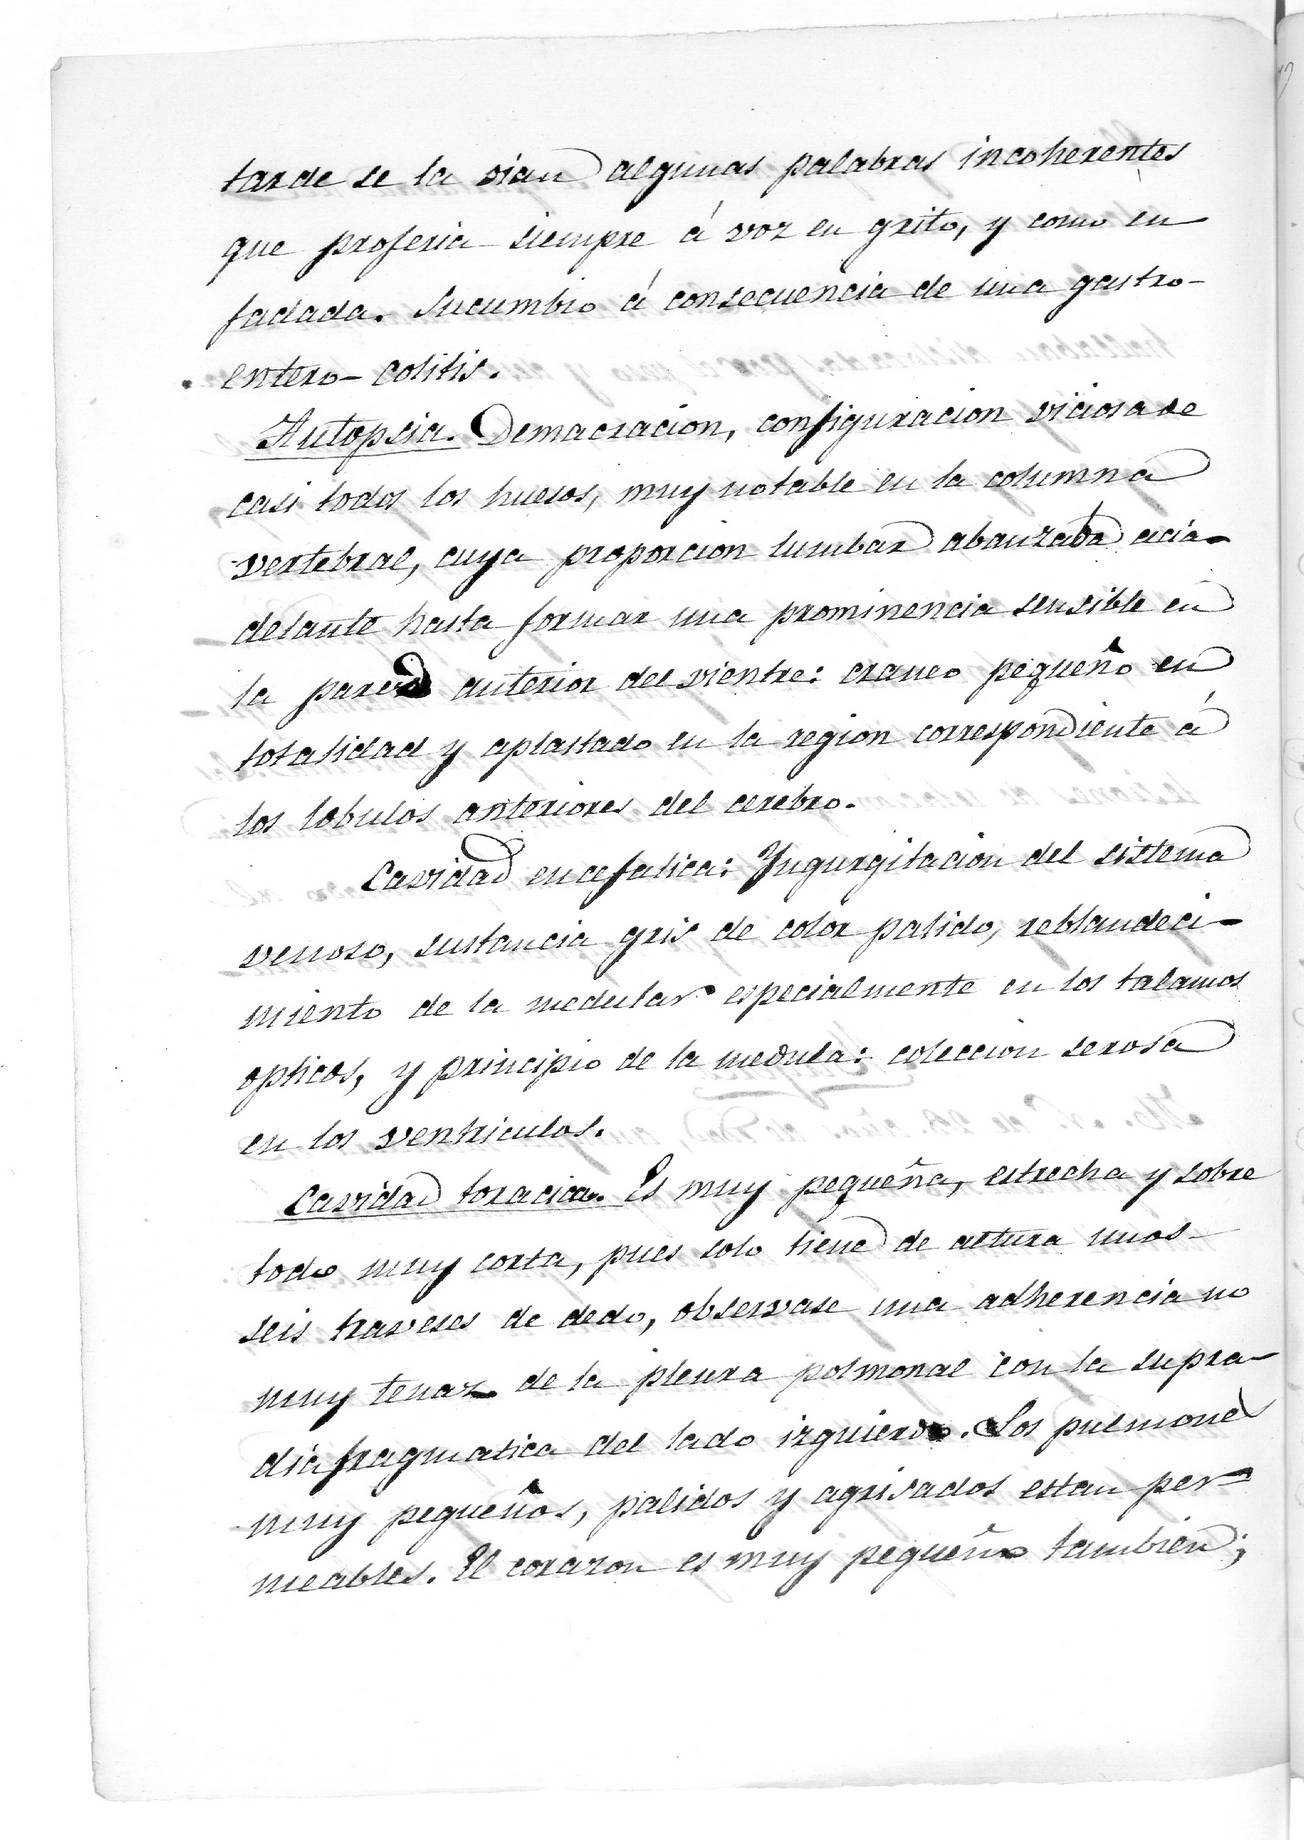 tarde se la oian algunas palabras incoherentes
que proferia siempre á voz en grito, y como en
fadada. Sucumbio á consecuencia de una gastro-
entero-colitis.
Autopsia. Demacracion, configuracion viciosa de
casi todos los huesos, muy notable en la columna
vertebral, cuya proporcion lumbar abanzaba acia
delante hasta formar una prominencia sensible en
la pared anterior del vientre: craneo pequeño en
totalidad y aplastado en la region correspondiente á
los lobulos anteriores del cerebro.
Cavidad encefalica: Yngurgitacion del sistema
venoso, sustancia gris de color palido, reblandeci-
miento de la medular especialmente en los talamos
opticos, y principio de la medula: coleccion serosa
en los ventriculos.
Cavidad toracica. Es muy pequeña, estrecha y sobre
todo muy corta, pues solo tiene de altura unos
seis traveses de dedo, observase una adherencia no
muy tenaz de la pleura polmonal con la supra-
diafragmatica del lado izquierdo. Los pulmones
muy pequeños, palidos y agrisados estan per-
meables. El corazon es muy pequeño tambien;